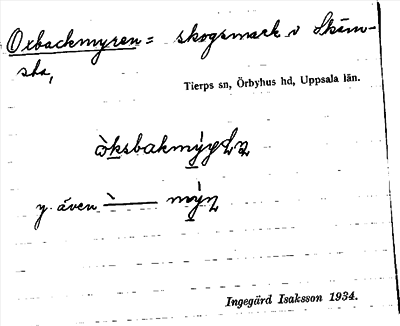 Oxbackmyren = skogsmark v Skäm-
sta,
Tierps sn, Örbyhus hd, Uppsala län.
y även
Ingegärd Isaksson 1934.